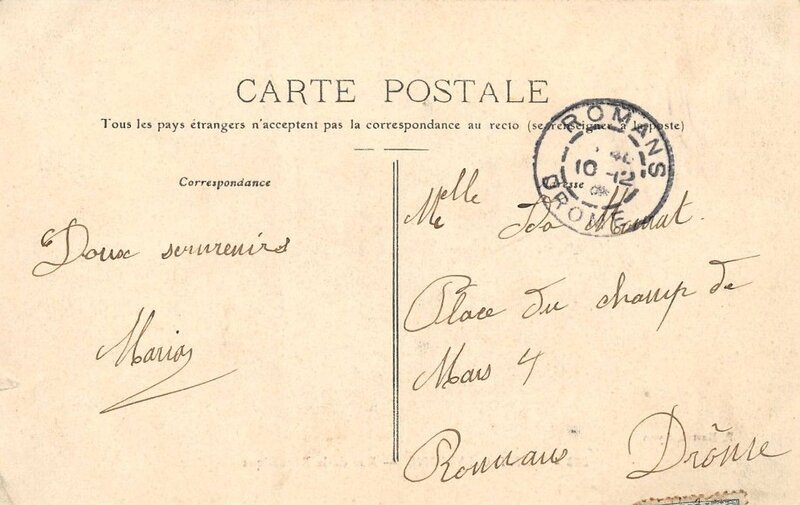 CARTE POSTALE
Tous les pays étrangers n'acceptent pas la correspondance au recto (se renseigner à la poste)
ROMANS
10 12
DROME
Correspondance
Adresse
Doux souvenirs
Maria
Melle
Place du champ de
Mars 4
Romans Drôme